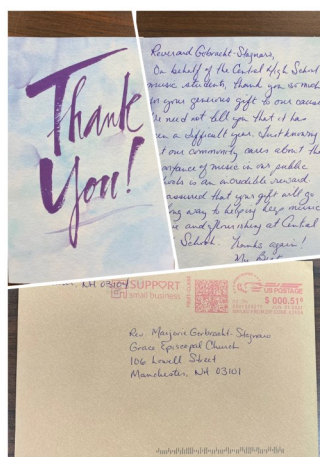 Thank
You!
Reverend Gerbracht-Stagnaro,
On behalf of the Central High School
music students, thank you so much
your generous gift to our cause
need not tell you that it has
a difficult year. Just knowing
our community cares about the
of music in our public
is an incredible reward
assured that your gift will go
way to helping keep music
and flourishing at Central
School. Thanks again!
NH 03104
SUPPORT
small business
US POSTAGE
$ 000.51
Rev. Marjorie Gerbracht-Stagnaro
Grace Episcopal Church
106 Lowell Street
Manchester, NH 03101